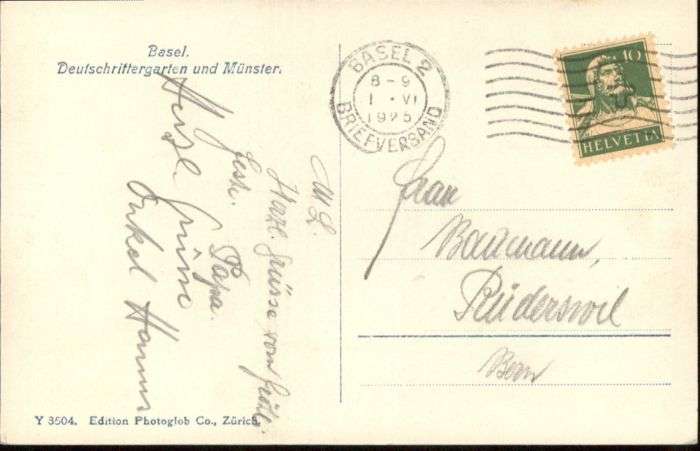 Basel.
Deutschrittergarten und Münster.
BASEL 2
8-9
1 · VI
1925
BRIEFVERSAND
10
HELVETIA
M. L.
Herzl. Grüsse vom
Papa.
Herzl. Grüsse
Onkel Hannes
Frau
Baumann,
Rüderswil
Bern
Y 3504. Edition Photoglob Co., Zürich.